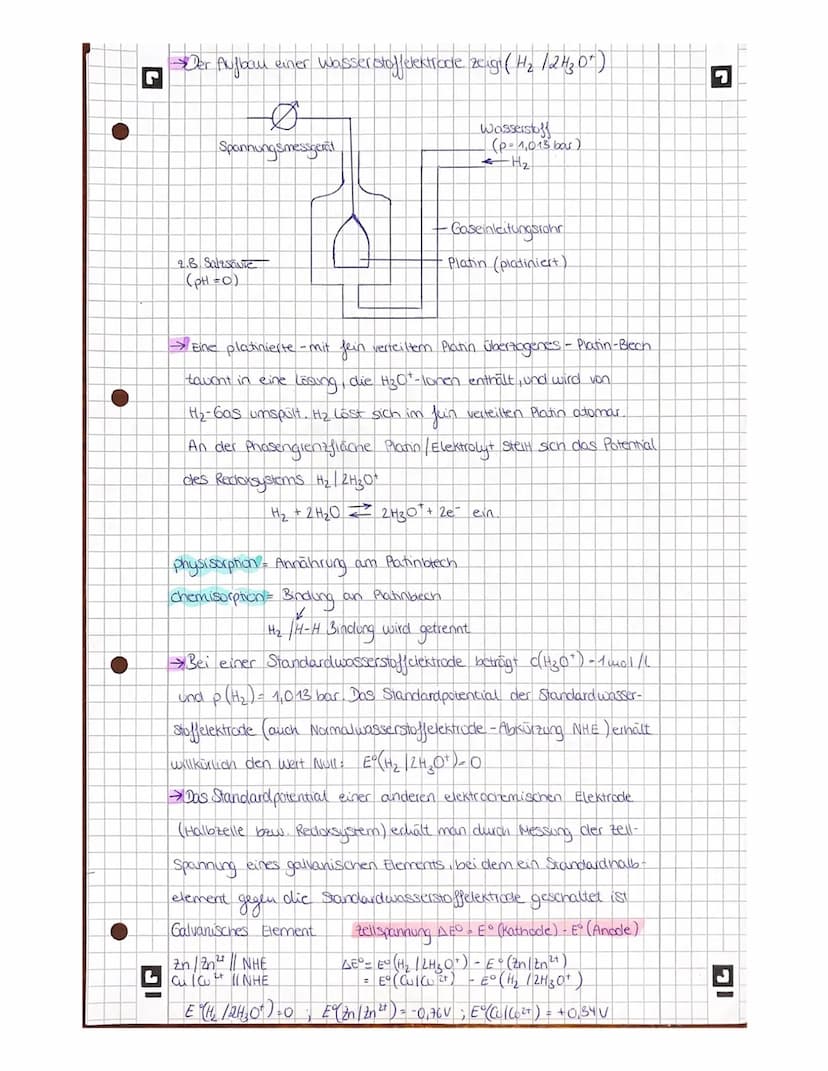 → Der Aufbau einer Wasserstoffelektrode zeigt (H₂ / 2H₃O⁺)
Wasserstoff
Spannungsmessgerät
(p = 1,013 bar)
← H₂
Gaseinleitungsrohr
z.B. Salzsäure
Platin (platiniert)
(pH = 0)
→ Eine platinierte - mit fein verteiltem Platin überzogenes - Platin-Blech
taucht in eine Lösung, die H₃O⁺-Ionen enthält, und wird von
H₂-Gas umspült. H₂ löst sich im fein verteilten Platin atomar.
An der Phasengrenzfläche Platin/Elektrolyt stellt sich das Potential
des Redoxsystems H₂ / 2H₃O⁺
H₂ + 2H₂O ⇄ 2H₃O⁺ + 2e⁻ ein.
physisorption = Annährung am Patinblech
chemisorption = Bindung an Platinblech
↙
H₂ / H-H Bindung wird getrennt
→ Bei einer Standardwasserstoffelektrode beträgt c(H₃O⁺) = 1 mol/L
und p(H₂) = 1,013 bar. Das Standardpotential der Standardwasser-
stoffelektrode (auch Normalwasserstoffelektrode - Abkürzung NHE) erhält
willkürlich den Wert Null: E⁰(H₂ / 2H₃O⁺) = 0
→ Das Standardpotential einer anderen elektrochemischen Elektrode
(Halbzelle bzw. Redoxsystem) erhält man durch Messung der Zell-
spannung eines galvanischen Elements, bei dem ein Standardhalb-
element gegen die Standardwasserstoffelektrode geschaltet ist
Galvanisches Element Zellspannung ΔE⁰ = E⁰ (Kathode) - E⁰ (Anode)
Zn / Zn²⁺ // NHE ΔE⁰ = E⁰ (H₂ / 2H₃O⁺) - E⁰ (Zn/Zn²⁺)
Cu / Cu²⁺ // NHE = E⁰ (Cu/Cu²⁺) - E⁰ (H₂ / 2H₃O⁺)
E⁰(H₂ / 2H₃O⁺) = 0 ; E⁰(Zn/Zn²⁺) = -0,76V ; E⁰(Cu/Cu²⁺) = +0,34V